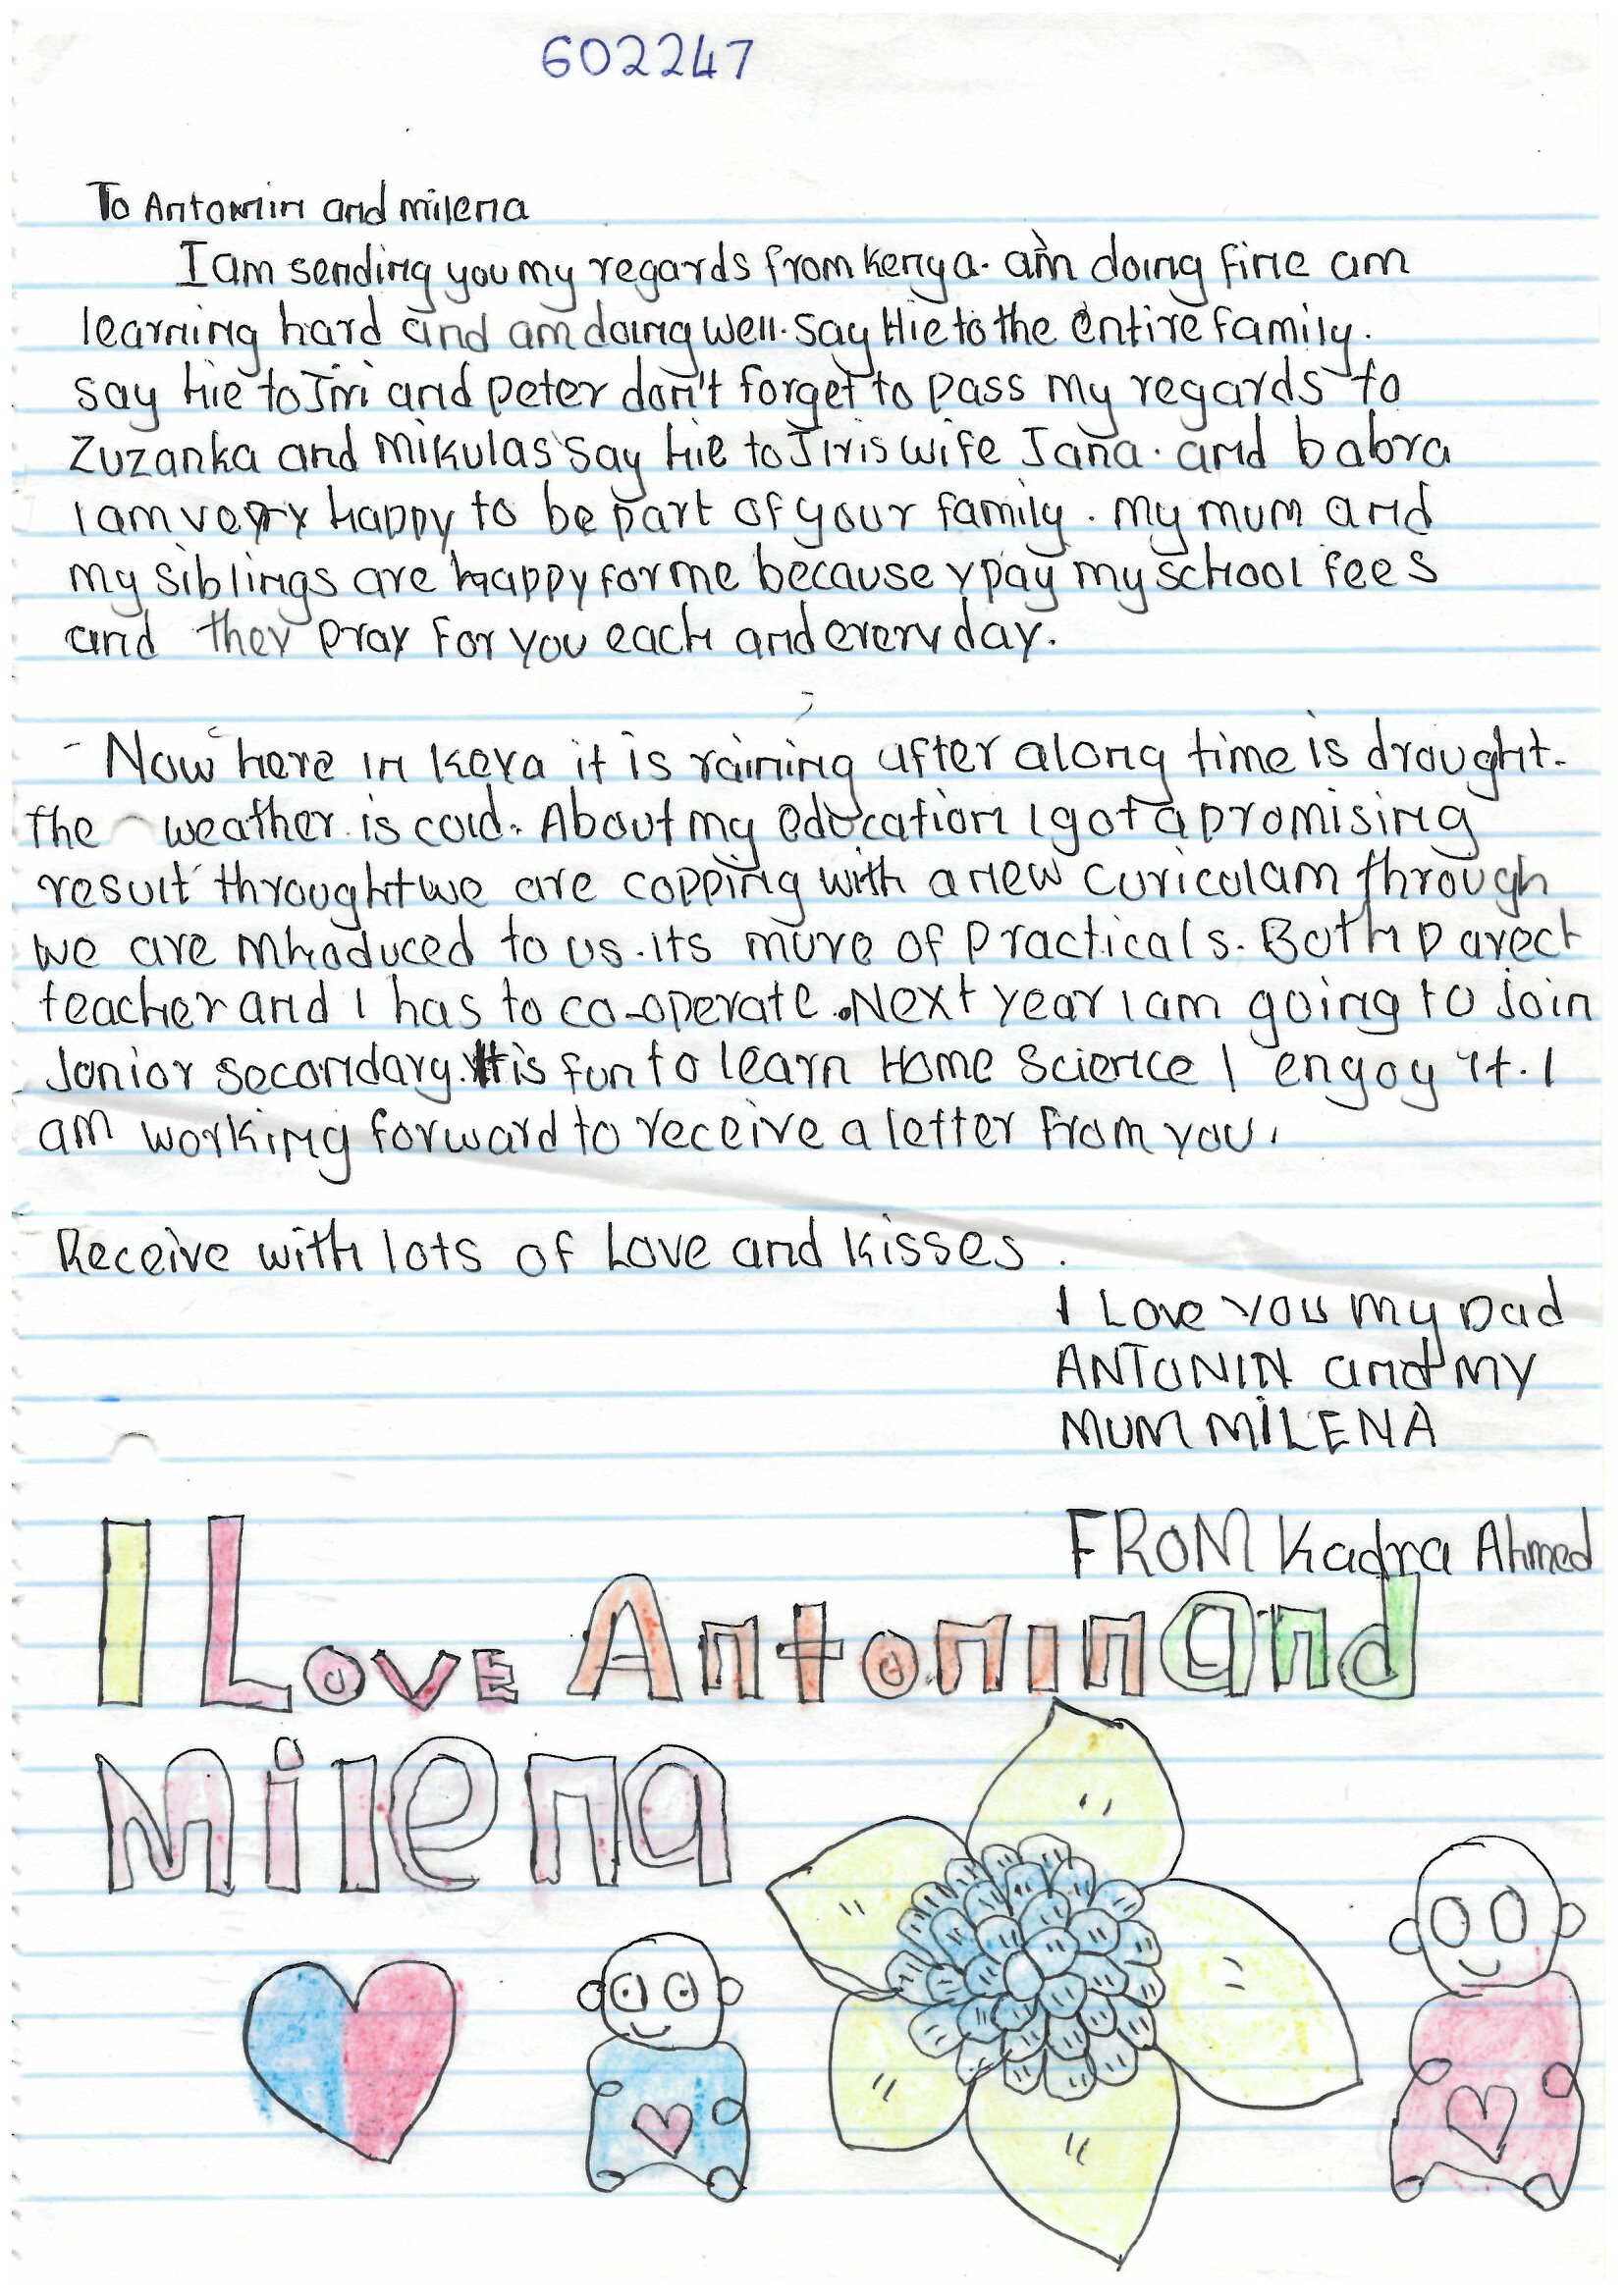 602247
To Antonnin and milena
I am sending you my regards from Kenya. am doing fine am
learning hard and am doing well. Say Hie to the Entire family.
Say hie to Jiri and peter don't forget to pass my regards to
Zuzanka and Mikulas Say hie to Jiris wife Jana. and babra
I am very happy to be part of your family. My mum and
my siblings are happy for me because y pay my school fees
and they pray for you each and every day.
Now here in Keya it is raining after along time is drought.
The weather is cold. About my education I got a promising
result throught we are copping with a new curiculam through
we are introduced to us. its more of practicals. Both parect
teacher and I has to co-operate. Next year I am going to join
Junior secondary. It is fun to learn Home Science I engoy it. I
am working forward to receive a letter from you.
Receive with lots of Love and kisses.
I Love you my Dad
ANTONIN and MY
MUM MILENA
FROM Kadra Ahmed
I Love Antonin and
Milena